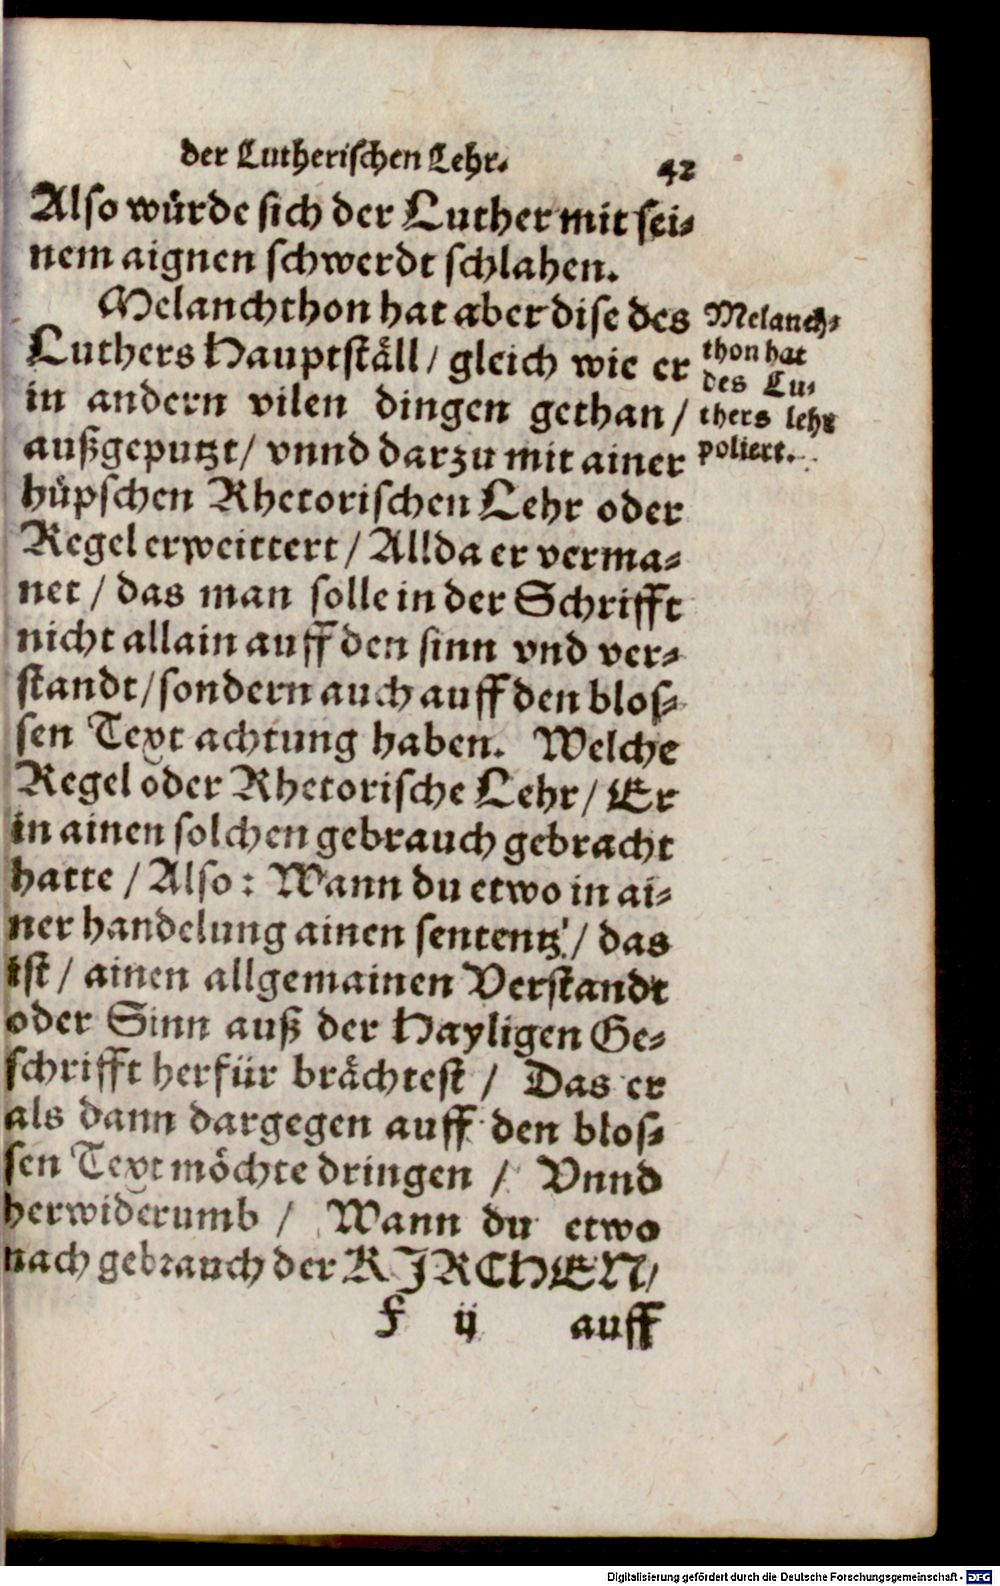 der Lutherischen Lehr. 42
Also würde sich der Luther mit sei-
nem aignen schwerdt schlahen.
Melanchthon hat aber dise des
Luthers Hauptställ / gleich wie er
in andern vilen dingen gethan /
außgeputzt / vnnd darzu mit ainer
hüpschen Rhetorischen Lehr oder
Regel erweittert / Allda er verma-
net / das man solle in der Schrifft
nicht allain auff den sinn vnd ver-
standt / sondern auch auff den blos-
sen Text achtung haben. Welche
Regel oder Rhetorische Lehr / Er
in ainen solchen gebrauch gebracht
hatte / Also: Wann du etwo in ai-
ner handelung ainen sententz / das
ist / ainen allgemainen Verstandt
oder Sinn auß der Hayligen Ge-
schrifft herfür brächtest / Das er
als dann dargegen auff den blos-
sen Text möchte dringen / Vnnd
herwiderumb / Wann du etwo
nach gebrauch der KIRCHEN /
F ij auff
Melanch-
thon hat
des Lu-
thers lehr
poliert.
Digitalisierung gefördert durch die Deutsche Forschungsgemeinschaft - DFG